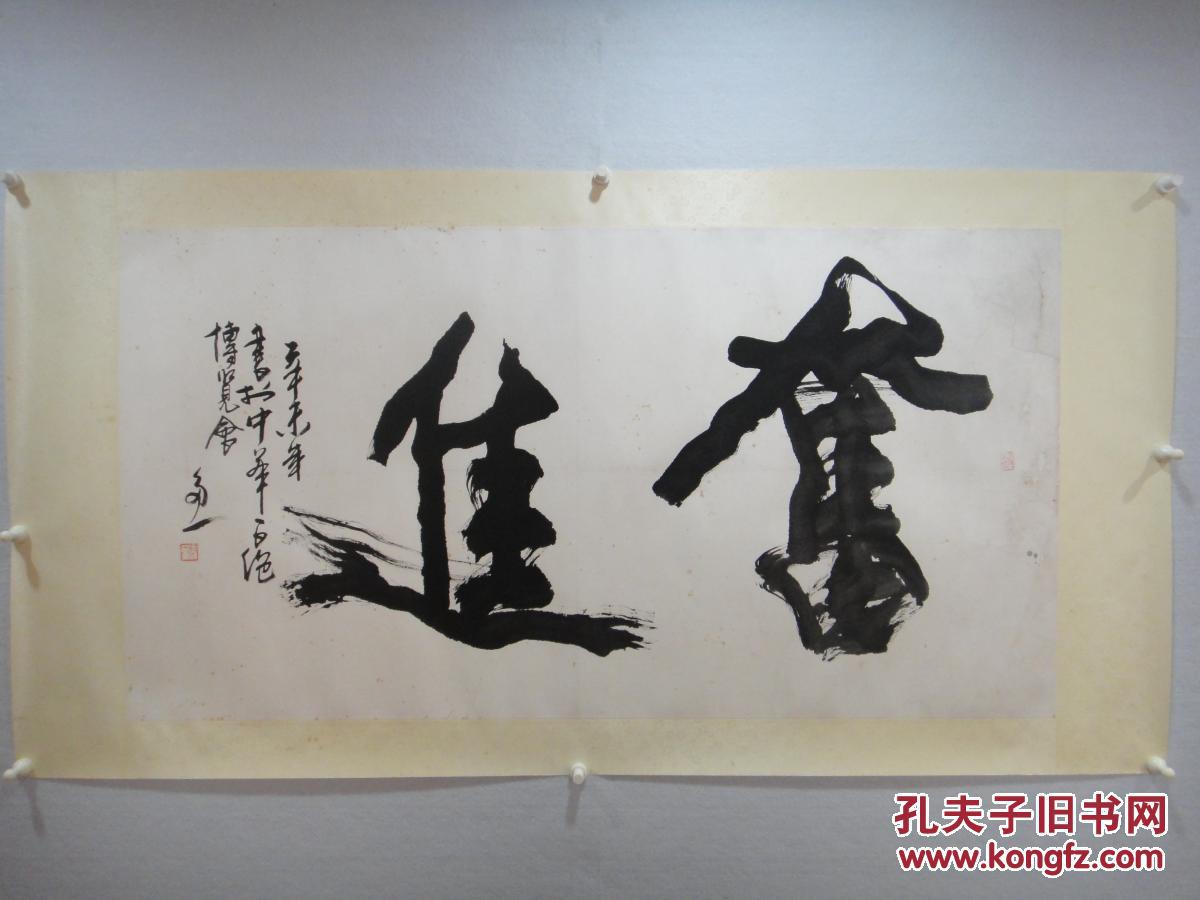 奮進
辛未年
書於中華百絕
博覽會
孔夫子旧书网
www.kongfz.com